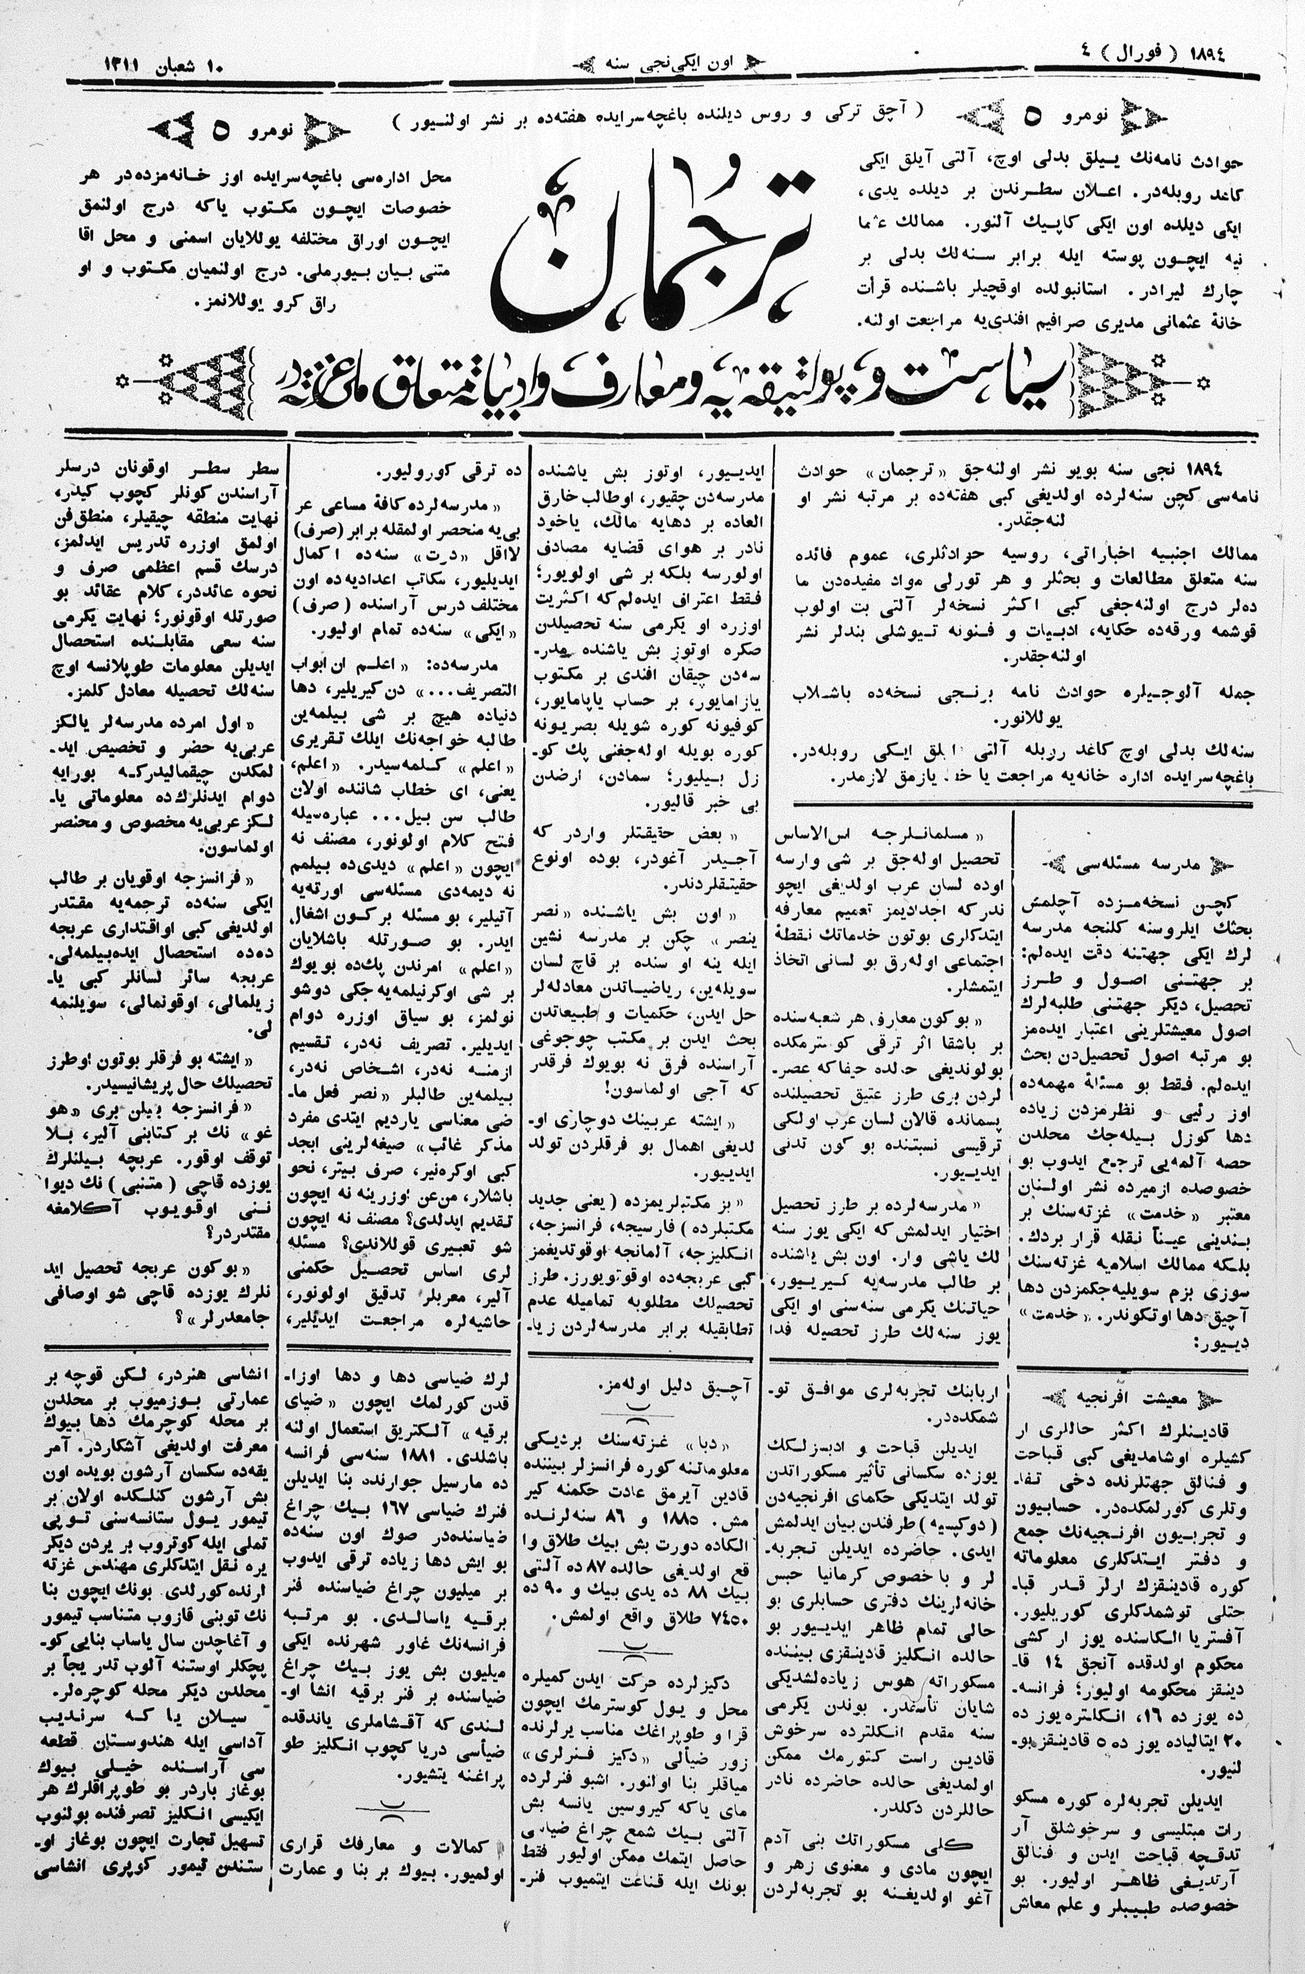 ١٨٩٤ ( فورال ) ٤
اون ایکی نجی سنه
١٠ شعبان ١٣١١
نومرو ٥
( آچق ترکی و روس دیلنده باغچه‌سرایده هفته‌ده بر نشر اولنیور )
نومرو ٥
حوادث نامه‌نك ییلق بدلی اوچ، آلتی آیلق ایکی
کاغد روبله‌در. اعلان سطرندن بر دیلده یدی،
ایکی دیلده اون ایکی کاپیك آلنور. ممالك عثما
نیه ایچون پوسته ایله برابر سنه‌لك بدلی بر
چارك لیرادر. استانبولده اوقچیلر باشنده قرأت
خانهٔ عثمانی مدیری صرافیم افندی‌یه مراجعت اولنه.
ترجمان
محل اداره‌سی باغچه‌سرایده اوز خانه‌مزده‌در هر
خصوصات ایچون مکتوب یاکه درج اولنمق
ایچون اوراق مختلفه یوللایان اسمنی و محل اقا
متنی بیان بیورملی. درج اولنمیان مکتوب و او
راق کرو یوللانمز.
سیاست و پولتیقه‌یه و معارف و ادبیاته متعلق ملی غزته‌در
١٨٩٤ نجی سنه بویو نشر اولنه‌جق «ترجمان» حوادث
نامه‌سی کچن سنه‌لرده اولدیغی کبی هفته‌ده بر مرتبه نشر او
لنه‌جقدر.
ممالك اجنبیه اخباراتی، روسیه حوادثلری، عموم فائده
سنه متعلق مطالعات و بحثلر و هر تورلی مواد مفیده‌دن ما
ده‌لر درج اولنه‌جغی کبی اکثر نسخه‌لر آلتی بت اولوب
قوشمه ورقه‌ده حکایه، ادبیات و فنونه تیوشلی بندلر نشر
اولنه‌جقدر.
جمله آلوجیلره حوادث نامه برنجی نسخه‌ده باشلاب
یوللانور.
سنه‌لك بدلی اوچ کاغد روبله آلتی آیلق ایکی روبله‌در.
باغچه‌سرایده اداره خانه‌یه مراجعت یا خط یازمق لازمدر.
مدرسه مسئله‌سی
کچن نسخه‌مزده آچلمش
بحثك ایلروسنه کلنجه مدرسه
لرك ایکی جهتنه دقت ایده‌لم:
بر جهتنی اصول و طرز
تحصیل، دیگر جهتنی طلبه‌لرك
اصول معیشتلرینی اعتبار ایده‌مز
بو مرتبه اصول تحصیل‌دن بحث
ایده‌لم. فقط بو مسئلهٔ مهمه‌ده
اوز رئیی و نظرمزدن زیاده
دها کوزل بیله‌جك محلدن
حصه آلمه‌یی ترجیع ایدوب بو
خصوصده ازمیرده نشر اولنان
معتبر «خدمت» غزته‌سنك بر
بندینی عیناً نقله قرار بردك.
بلکه ممالك اسلامیه غزته‌سنك
سوزی بزم سویلیه‌جکمزدن دها
آچیق دها اوتکوندر. «خدمت»
دییور:
« مسلمانلرجه اس‌الاساس
تحصیل اوله‌جق بر شی وارسه
اوده لسان عرب اولدیغی ایچو
ندرکه اجدادیمز تعمیم معارفه
ایتدکاری بوتون خدماتك نقطهٔ
اجتماعی اوله‌رق بو لسانی اتخاذ
ایتمشلر.
« بوکون معارف هر شعبه‌سنده
بر باشقا اثر ترقی کوسترمکده
بولوندیغی حالده حیفاکه عصر-
لردن بری طرز عتیق تحصیلنده
پسمانده قالان لسان عرب اولکی
ترقیسی نسبتنده بو کون تدنی
ایدییور.
« مدرسه‌لرده بر طرز تحصیل
اختیار ایدلمش که ایکی یوز سنه
لك یاشی وار. اون بش یاشنده
بر طالب مدرسه‌یه کیرییور،
حیاتنك یکرمی سنه‌سنی او ایکی
یوز سنه‌لك طرز تحصیله فدا
ایدییور، اوتوز بش یاشنده
مدرسه‌دن چقیور، اوطالب خارق
العاده بر دهایه مالك، یاخود
نادر بر هوای قضایه مصادف
اولورسه بلکه بر شی اولویور؛
فقط اعتراف ایده‌لم که اکثریت
اوزره او یکرمی سنه تحصیلدن
صکره اوتوز بش یاشنده مدر-
سه‌دن چیقان افندی بر مکتوب
یازامایور، بر حساب یاپامایور،
کوفیونه کوره شویله بصریونه
کوره بویله اوله‌جغنی پك کو-
زل بیلیور؛ سمادن، ارضدن
بی خبر قالیور.
« بعض حقیقتلر واردر که
آجیدر آغودر، بوده اونوع
حقیتقلردندر.
« اون بش یاشنده «نصر
ینصر» چکن بر مدرسه نشین
ایله ینه او سنده بر قاچ لسان
سویله‌ین، ریاضیاتدن معادله‌لر
حل ایدن، حکمیات و طبیعاتدن
بحث ایدن بر مکتب چوجوغی
آراسنده فرق نه بویوك فرقدر
که آجی اولماسون!
« ایشته عربینك دوچاری او-
لدیغی اهمال بو فرقلردن تولد
ایدییور.
« بز مکتبلریمزده (یعنی جدید
مکتبلرده) فارسیجه، فرانسزجه،
انکلیزجه، آلمانجه اوقوتدیغمز
کبی عربجه‌ده اوقوتویورز. طرز
تحصیلك مطلوبه تمامیله عدم
تطابقیله برابر مدرسه‌لردن زیا-
ده ترقی کورولیور.
« مدرسه‌لرده کافهٔ مساعی عر
بی‌یه منحصر اولمقله برابر (صرف)
لااقل «درت» سنه‌ده اکمال
ایدیلیور، مکاتب اعدادیه‌ده اون
مختلف درس آراسنده (صرف)
«ایکی» سنه‌ده تمام اولیور.
مدرسه‌ده: «اعلم ان ابواب
التصریف...» دن کیریلیر، دها
دنیاده هیچ بر شی بیلمه‌ین
طالبه خواجه‌نك ایلك تقریری
«اعلم» کلمه‌سیدر. «اعلم،
یعنی، ای خطاب شاننده اولان
طالب سن بیل... عباره‌سیله
فتح کلام اولونور، مصنف نه
ایچون «اعلم» دیدی‌ده بیلمم
نه دیمه‌دی مسئله‌سی اورته‌یه
آتیلیر، بو مسئله بر کون اشغال
ایدر. بو صورتله باشلایان
«اعلم» امرندن پك‌ده بویوك
بر شی اوکرنیلمه‌یه‌جکی دوشو
نولمز، بو سیاق اوزره دوام
ایدیلیر. تصریف نه‌در، تقسیم
ازمنه نه‌در، اشخاص نه‌در،
بیلمه‌ین طالبلر «نصر فعل ما-
ضی معناسی یاردیم ایتدی مفرد
مذکر غائب» صیغه‌لرینی ابجد
کبی اوکره‌نیر، صرف بیتر، نحو
باشلار، من‌عن اوزرینه نه ایچون
تقدیم ایدلدی؟ مصنف نه ایچون
شو تعبیری قوللاندی؟ مسئله
لری اساس تحصیل حکمنی
آلیر، معربلر تدقیق اولونور،
حاشیه‌لره مراجعت ایدیلیر،
سطر سطر اوقونان درسلر
آراسندن کونلر کچوب کیدر،
نهایت منطقه چیقیلر، منطق فن
اولمق اوزره تدریس ایدلمز،
درسك قسم اعظمی صرف و
نحوه عائددر، کلام عقائد بو
صورتله اوقونور؛ نهایت یکرمی
سنه سعی مقابلنده استحصال
ایدیلن معلومات طوپلانسه اوچ
سنه‌لك تحصیله معادل کلمز.
« اول امرده مدرسه‌لر یالکز
عربی‌یه حضر و تخصیص اید-
لمکدن چیقمالیدرکه بورایه
دوام ایدنلرك‌ده معلوماتی یا-
لکز عربی‌یه مخصوص و منحصر
اولماسون.
« فرانسزجه اوقویان بر طالب
ایکی سنه‌ده ترجمه‌یه مقتدر
اولدیغی کبی او اقتداری عربجه
ده‌ده استحصال ایده‌بیلمه‌لی.
عربجه سائر لسانلر کبی یا-
زیلمالی، اوقونمالی، سویلنمه
لی.
« ایشته بو فرقلر بوتون او طرز
تحصیلك حال پریشانیسیدر.
« فرانسزجه بیلن بری «هو
غو» نك بر کتابنی آلیر، بلا
توقف اوقور. عربچه بیلنلرك
یوزده قاچی (متنبی) نك دیوا
ننی اوقویوب آکلامغه
مقتدردر؟
« بوکون عربجه تحصیل اید
نلرك یوزده قاچی شو اوصافی
جامعدرلر »؟
معیشت افرنجیه
قادینلرك اکثر حاللری ار
کشیلره اوشامدیغی کبی قباحت
و فنالق جهتلرنده دخی تفا-
وتلری کورلمکده‌در. حسابیون
و تجربیون افرنجیه‌نك جمع
و دفتر ایتدکلری معلوماته
کوره قادینقزك ارلر قدر قبا-
حتلی توشمدکلری کوریلیور.
آفستریا الکاسنده یوز ار کشی
محکوم اولدقده آنجق ١٤ قا-
دینقز محکومه اولیور؛ فرانسه-
ده یوز ده ١٦، انکلتره یوز ده
٢٠ ایتالیاده یوز ده ٥ قادینقز بو-
لنیور.
ایدیلن تجربه‌لره کوره مسکو
رات مبتلیسی و سرخوشلق آر
تدقچه قباحت ایدن و فنالق
آرتدیغی ظاهر اولیور. بو
خصوصده طبیبلر و علم معاش
اربابنك تجربه‌لری موافق تو-
شمکده‌در.
ایدیلن قباحت و ادبسزلکك
یوزده سکسانی تأثیر مسکوراتدن
تولد ایتدیکی حکمای افرنجیه‌دن
(دوکپسیه) طرفندن بیان ایدلمش
ایدی. حاضرده ایدیلن تجربه-
لر و با خصوص کرمانیا حبس
خانه‌لرینك دفتری حسابلری بو
حالی تمام ظاهر ایدییور بو
حالده انکلیز قادینقزی بیننده
مسکوراته هوس زیاده‌لشدیکی
شایان تأسفدر. بوندن یکرمی
سنه مقدم انکلترده سرخوش
قادین راست کتورمك ممکن
اولمدیغی حالده حاضرده نادر
حاللردن دکلدر.
کلی مسکوراتك بنی آدم
ایچون مادی و معنوی زهر و
آغو اولدیغنه بو تجربه‌لردن
آچیق دلیل اوله‌مز.
«دبا» غزته‌سنك بردیکی
معلوماتنه کوره فرانسزلر بیننده
قادین آیرمق عادت حکمنه کیر
مش. ١٨٨٥ و ٨٦ سنه‌لرنده
الکاده دورت بش بیك طلاق وا
قع اولدیغی حالده ٨٧ ده آلتی
بیك ٨٨ ده یدی بیك و ٩٠ ده
٧٤٥٠ طلاق واقع اولمش.
دکیزلرده حرکت ایدن کمیلره
محل و یول کوسترمك ایچون
قرا و طوپراغك مناسب یرلرنده
زور ضیألی «دکیز فنرلری»
میاقلر بنا اولنور. اشبو فنرلرده
مای یاکه کیروسین یانسه بش
آلتی بیك شمع چراغ ضیاسی
حاصل ایتمك ممکن اولیور فقط
بونك ایله قناعت ایتمیوب فنر-
لرك ضیاسی دها و دها اوزا-
قدن کورلمك ایچون «ضیای
برقیه» آلکتریق استعمال اولنه
باشلدی. ١٨٨١ سنه‌سی فرانسه
ده مارسیل جوارنده بنا ایدیلن
فنرك ضیاسی ١٦٧ بیك چراغ
ضیاسنده‌در صوك اون سنه‌ده
بو ایش دها زیاده ترقی ایدوب
بر میلیون چراغ ضیاسنده فنر
برقیه یاسالدی. بو مرتبه
فرانسه‌نك غاور شهرنده ایکی
میلیون بش یوز بیك چراغ
ضیاسنده بر فنر برقیه انشا او-
لندی که آقشاملری یاندقده
ضیأسی دریا کچوب انکلیز طو
پراغنه یتشیور.
کمالات و معارفك قراری
اولمیور. بیوك بر بنا و عمارت
انشاسی هنردر، لکن قوچه بر
عمارتی بوزمیوب بر محلدن
بر محله کوچرمك دها بیوك
معرفت اولدیغی آشکاردر. آمر
یقه‌ده سکسان آرشون بویده اون
بش آرشون کنلکده اولان بر
تیمور یول ستانسه‌سنی توپی
تملی ایله کوتروب بر یردن دیگر
یره نقل ایتدکلری مهندس غزته
لرنده کورلدی. بونك ایچون بنا
نك توبنی قازوب متناسب تیمور
و آغاچدن سال یاساب بنایی کو-
پچکلر اوستنه آلوب تدریجاً بر
محلدن دیگر محله کوچره‌لر.
سیلان یا که سرندیب
آداسی ایله هندوستان قطعه
سی آراسنده خیلی بیوك
بوغاز باردر بو طوپراقلرك هر
ایکیسی انکلیز تصرفنده بولنوب
تسهیل تجارت ایچون بوغاز او-
ستندن تیمور کوپری انشاسی